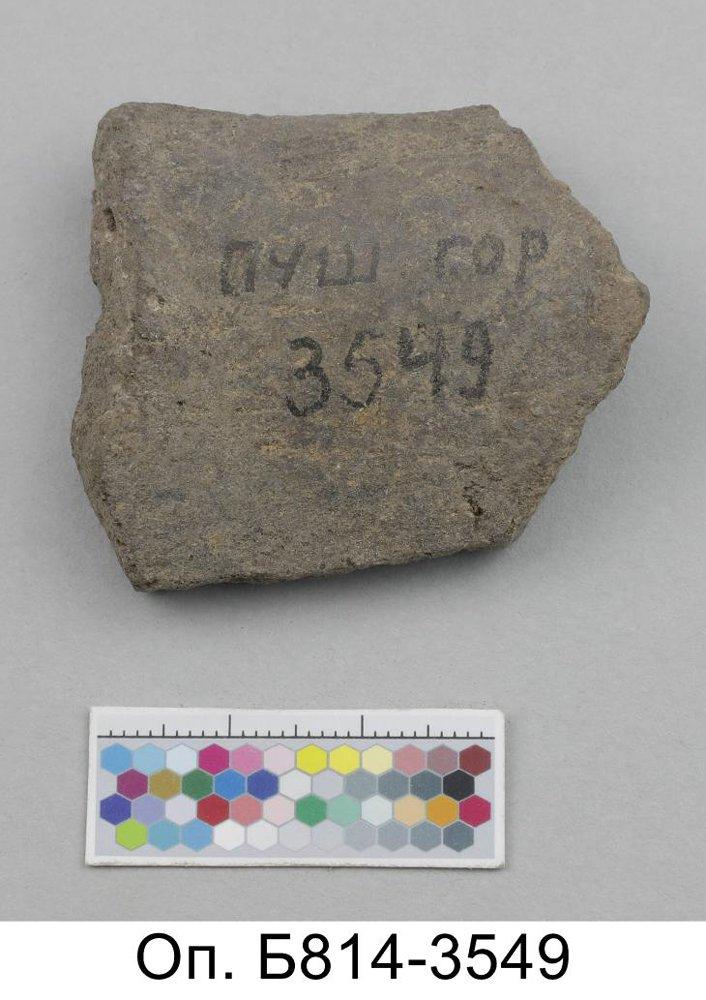 ПУШ ГОР
3549
Оп. Б814-3549